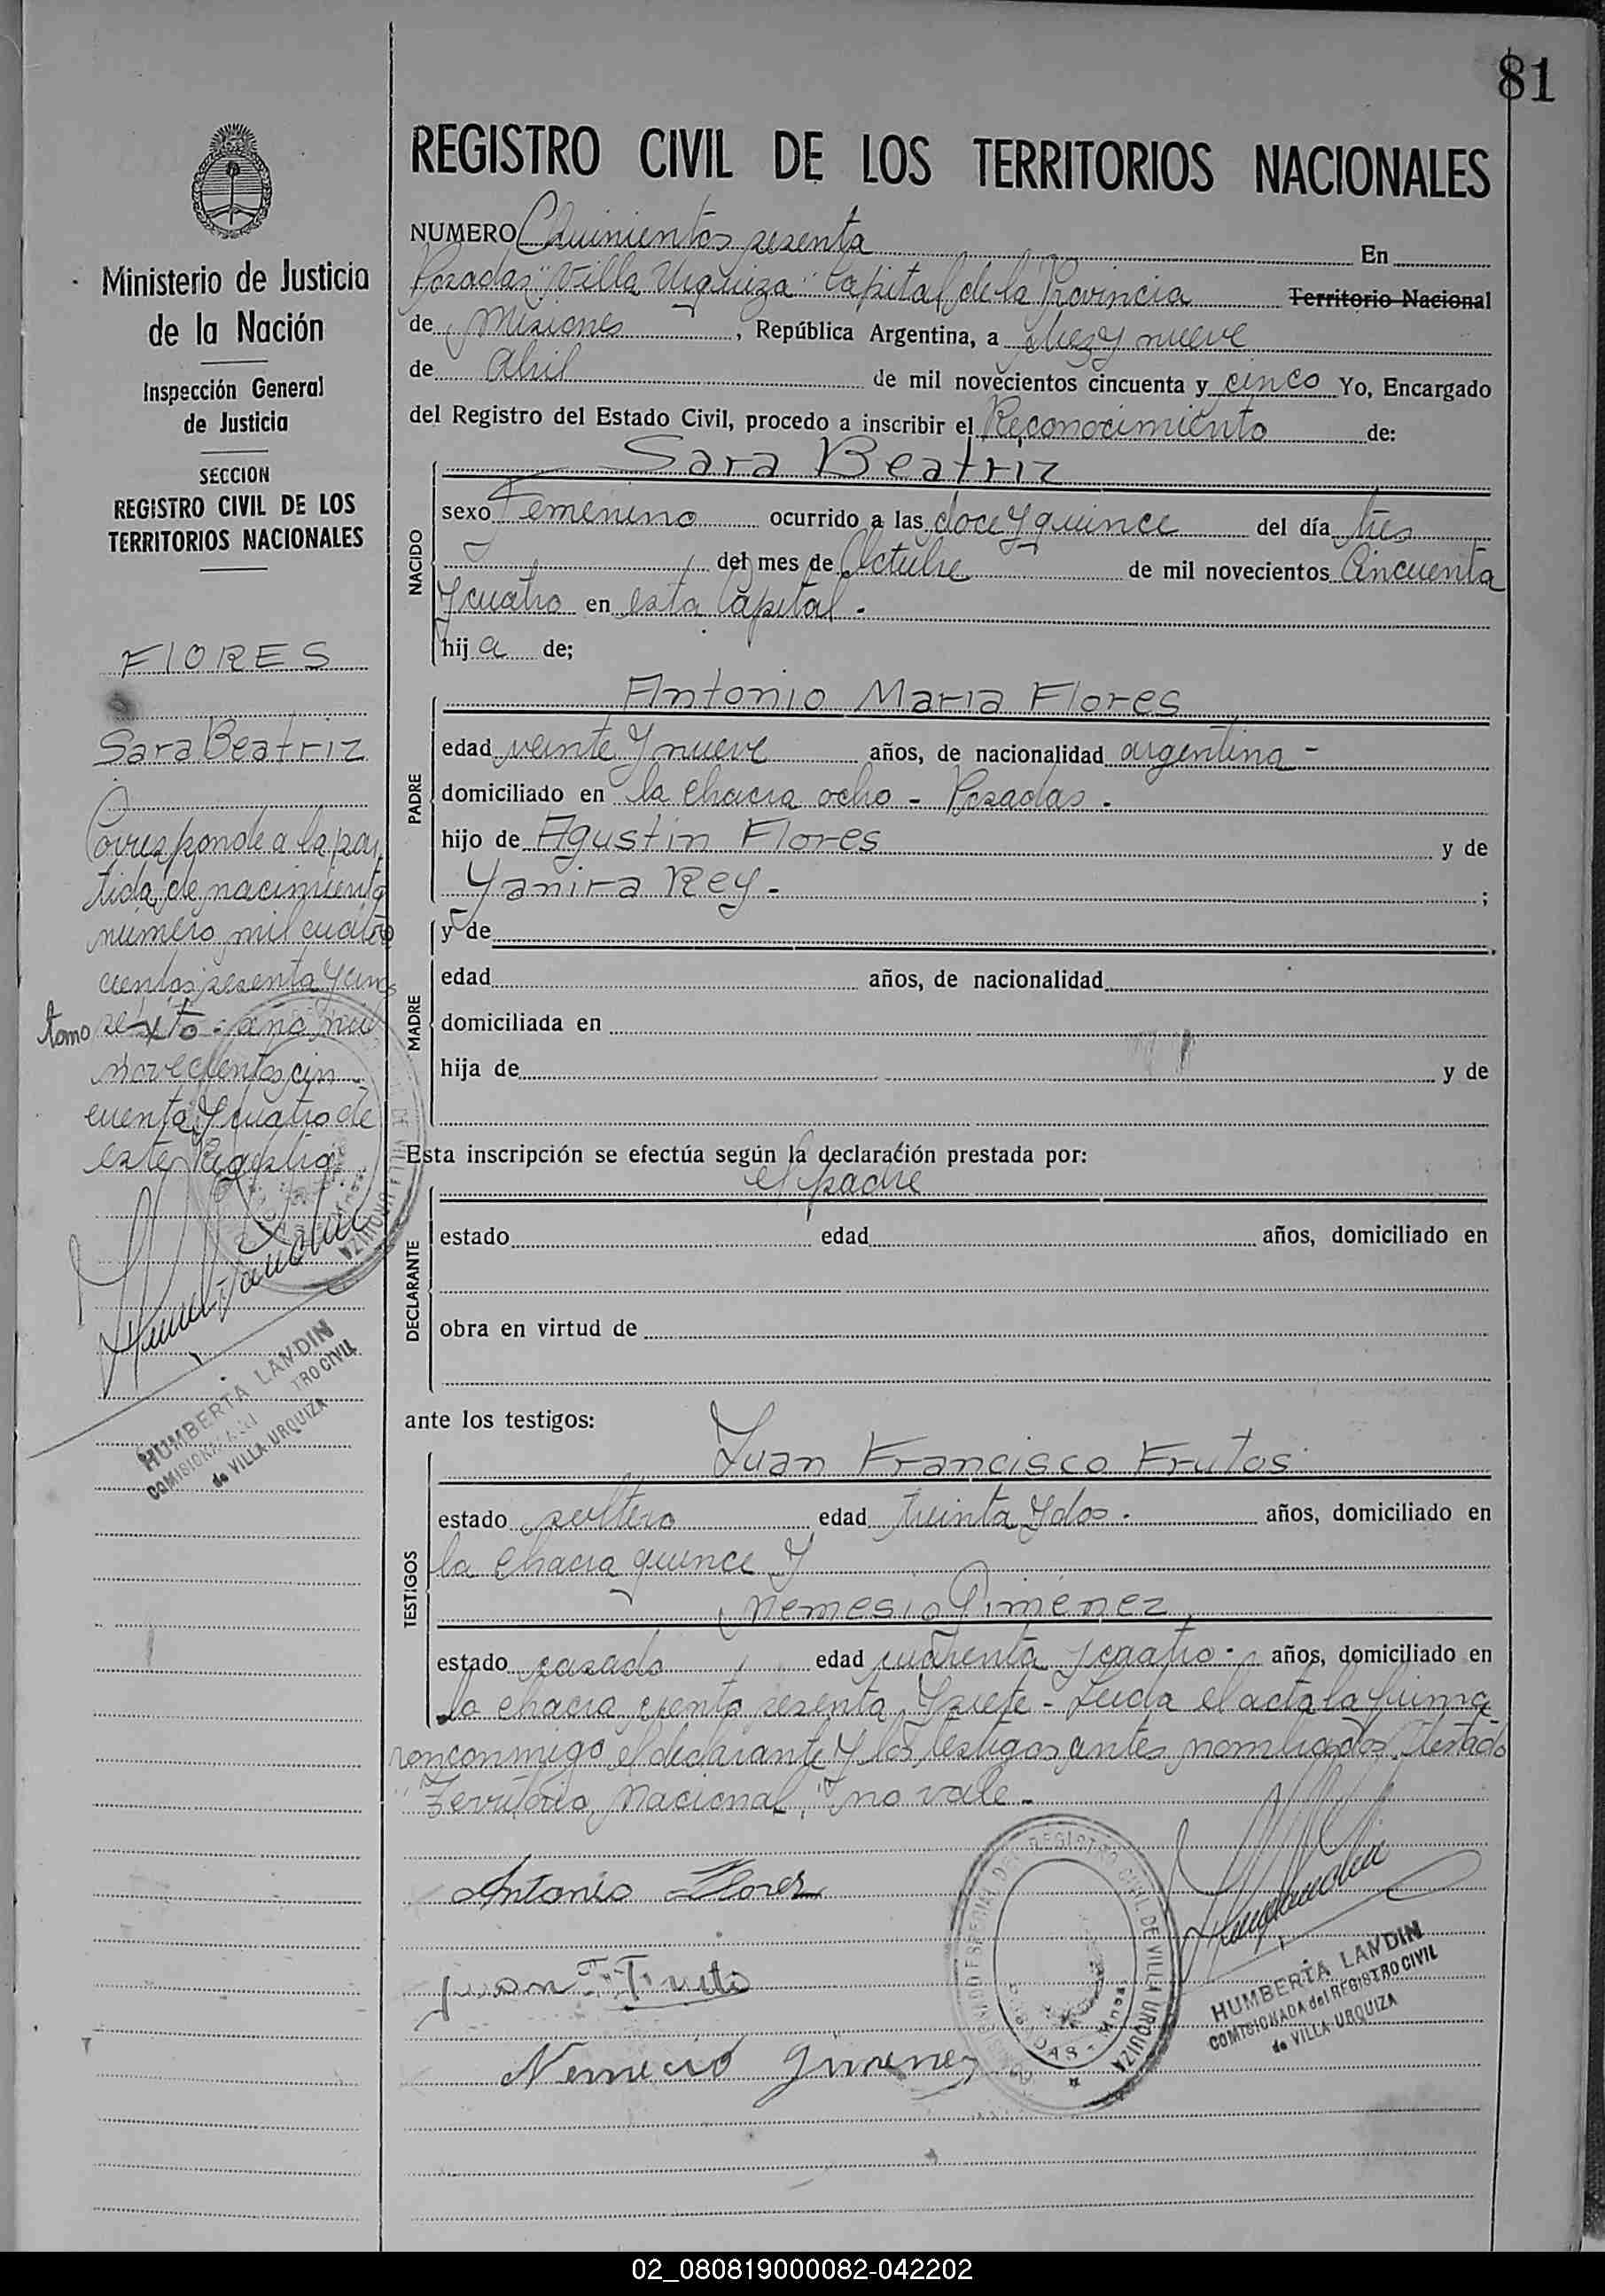 81
REGISTRO CIVIL DE LOS TERRITORIOS NACIONALES
Ministerio de Justicia
de la Nación
Inspección General
de Justicia
SECCION
REGISTRO CIVIL DE LOS
TERRITORIOS NACIONALES
FLORES
Sara Beatriz
Corresponde a la par
tida de nacimiento
número mil cuatro
cientos sesenta y uno
tomo sexto - año mil
novecientos cin
cuenta y cuatro de
este Registro
HUMBERTA LANDIN
COMISIONADA del TRO CIVIL
de VILLA URQUIZA
NUMERO Quinientos sesenta En
Posadas "Villa Urquiza" Capital de la Provincia Territorio Nacional
de Misiones, República Argentina, a diez y nueve
de abril de mil novecientos cincuenta y cinco Yo, Encargado
del Registro del Estado Civil, procedo a inscribir el Reconocimiento de:
NACIDO
Sara Beatriz
sexo Femenino ocurrido a las doce y quince del día tres
del mes de Octubre de mil novecientos Cincuenta
y cuatro en esta Capital.
hija de;
PADRE
Antonio Maria Flores
edad veinte y nueve años, de nacionalidad argentina -
domiciliado en la chacra ocho - Posadas.
hijo de Agustin Flores y de
Yanira Rey - ;
MADRE
y de
edad años, de nacionalidad
domiciliada en
hija de y de
Esta inscripción se efectúa según la declaración prestada por:
DECLARANTE
el padre
estado edad años, domiciliado en
obra en virtud de
ante los testigos:
TESTIGOS
Juan Francisco Frutos
estado soltero edad treinta y dos. años, domiciliado en
la chacra quince y
Nemesio Gimenez
estado casado edad cuarenta y cuatro - años, domiciliado en
la chacra ciento sesenta y siete - Leida el acta la firma
ron conmigo el declarante y los testigos antes nombrados. Testado
"Territorio Nacional," no vale -
Antonio Flores
Juan F. Fruto
Nemecio Gimenez
REGISTRO CIVIL DE VILLA URQUIZA
HUMBERTA LANDIN
COMISIONADA del REGISTRO CIVIL
de VILLA URQUIZA
02_080819000082-042202